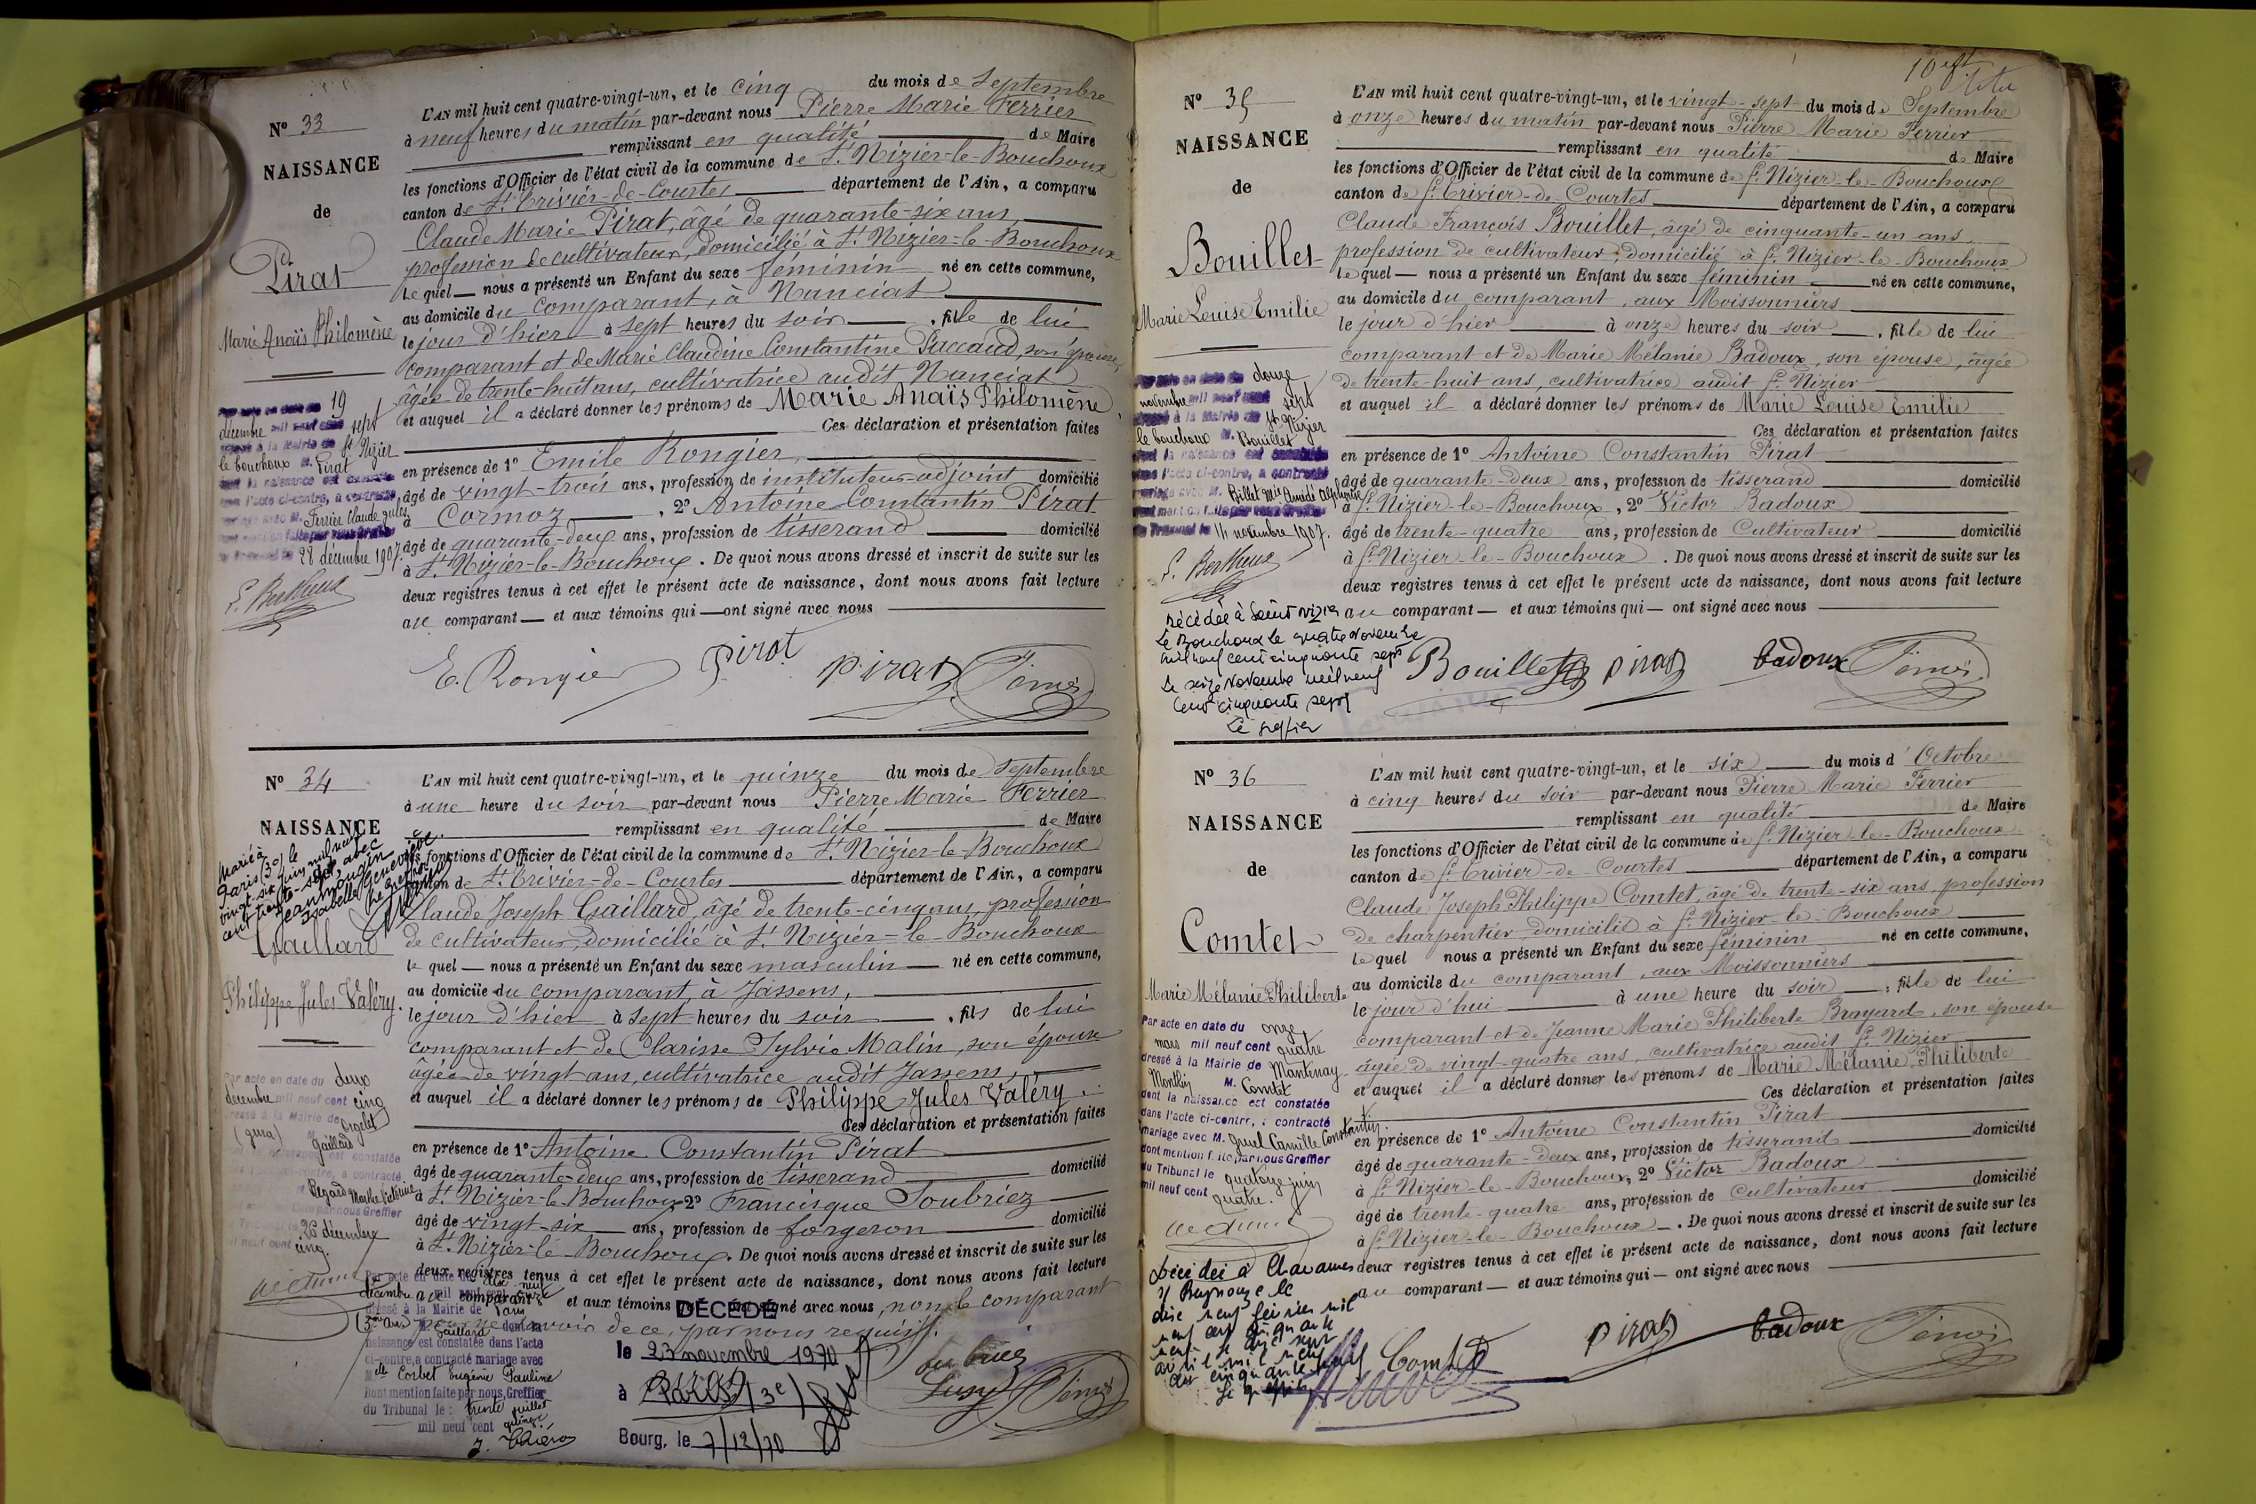 N° 33
NAISSANCE
de
Pirat
Marie Anaïs Philomène
19
décembre mil neuf cent sept
dressé à la Mairie de St Nizier
le bouchoux M. Pirat
dont la naissance est constatée
dans l'acte ci-contre, a contracté
mariage avec M. Ferrier Claude Jules
28 décembre 1907.
L'AN mil huit cent quatre-vingt-un, et le cinq du mois de Septembre
à neuf heures du matin par-devant nous Pierre Marie Ferrier
remplissant en qualité de Maire
les fonctions d'Officier de l'état civil de la commune de St. Nizier-le-Bouchoux
canton de St. Trivier-de-Courtes département de l'Ain, a comparu
Claude Marie Pirat, âgé de quarante-six ans,
profession de cultivateur, domicilié à St. Nizier-le-Bouchoux
Le quel nous a présenté un Enfant du sexe féminin né en cette commune,
au domicile du comparant, à Nanciat
le jour d'hier à sept heures du soir, fille de lui
comparant et de Marie Claudine Constantine Paccaud, son épouse,
âgée de trente-huit ans, cultivatrice audit Nanciat
et auquel il a déclaré donner les prénoms de Marie Anaïs Philomène,
Ces déclaration et présentation faites
en présence de 1° Emile Rongier,
âgé de vingt-trois ans, profession de instituteur-adjoint domicilié
à Cormoz, 2° Antoine Constantin Pirat
âgé de quarante-deux ans, profession de tisserand domicilié
à St. Nizier-le-Bouchoux. De quoi nous avons dressé et inscrit de suite sur les
deux registres tenus à cet effet le présent acte de naissance, dont nous avons fait lecture
au comparant et aux témoins qui ont signé avec nous
E. Rongier Pirat Pirat
N° 34
NAISSANCE
de
Marié à
Paris (3e) le
vingt-six juin mil neuf
cent trente-sept avec
Jeanmougin
Isabelle Geneviève
Le greffier
Gaillard
Philippe Jules Valéry.
Par acte en date du deux
décembre mil neuf cent cinq
dressé à la Mairie de Orgelet
(Jura) M. Gaillard
dont la naissance est constatée
dans l'acte ci-contre, a contracté
Regard Marthe Victorine
26 décembre
mil neuf cent cinq.
L'AN mil huit cent quatre-vingt-un, et le quinze du mois de Septembre
à une heure du soir par-devant nous Pierre Marie Ferrier
remplissant en qualité de Maire
les fonctions d'Officier de l'état civil de la commune de St. Nizier-le-Bouchoux
canton de St. Trivier-de-Courtes département de l'Ain, a comparu
Claude Joseph Gaillard, âgé de trente-cinq ans, profession
de cultivateur, domicilié à St. Nizier-le-Bouchoux
le quel nous a présenté un Enfant du sexe masculin né en cette commune,
au domicile du comparant, à Jassens,
le jour d'hier à sept heures du soir, fils de lui
comparant et de Clarisse Sylvie Malin, son épouse
âgée de vingt ans, cultivatrice audit Jassens,
et auquel il a déclaré donner les prénoms de Philippe Jules Valéry.
Ces déclaration et présentation faites
en présence de 1° Antoine Constantin Pirat
âgé de quarante-deux ans, profession de tisserand domicilié
à St. Nizier-le-Bouchoux 2° Francisque Soubriez
âgé de vingt-six ans, profession de forgeron domicilié
à St. Nizier-le-Bouchoux. De quoi nous avons dressé et inscrit de suite sur les
deux registres tenus à cet effet le présent acte de naissance, dont nous avons fait lecture
au comparant et aux témoins signé avec nous, non le comparant
pour ne savoir de ce, par nous requis.
Par acte en date du dix-neuf
décembre mil neuf cent onze
dressé à la Mairie de Paris
Gaillard dont la
naissance est constatée dans l'acte
ci-contre, a contracté mariage avec
Mlle Corbet Eugénie Pauline
Dont mention faite par nous, Greffier
du Tribunal le: trente juillet
mil neuf cent quinze
DÉCÉDÉ
le 23 novembre 1970
à Paris (3e)
Bourg, le 7/12/70
N° 35
NAISSANCE
de
Bouillet
Marie Louise Emilie
Par acte en date du douze
novembre mil neuf cent sept
dressé à la Mairie de St Nizier
le bouchoux M. Bouillet
dont la naissance est constatée
dans l'acte ci-contre, a contracté
mariage avec M. Billet Mie Amédé Alphonse
dont mention faite par nous Greffier
du Tribunal le 14 novembre 1907.
Décédée à Saint Nizier
Le Bouchoux le quatre Novembre
mil neuf cent cinquante sept
Le seize Novembre mil neuf
cent cinquante sept
Le greffier
L'AN mil huit cent quatre-vingt-un, et le vingt-sept du mois de Septembre
à onze heures du matin par-devant nous Pierre Marie Ferrier
remplissant en qualité de Maire
les fonctions d'Officier de l'état civil de la commune de St. Nizier-le-Bouchoux
canton de St. Trivier-de-Courtes département de l'Ain, a comparu
Claude François Bouillet, âgé de cinquante-un ans,
profession de cultivateur, domicilié à St. Nizier-le-Bouchoux
Le quel nous a présenté un Enfant du sexe féminin né en cette commune,
au domicile du comparant, aux Moissonniers
le jour d'hier à onze heures du soir, fille de lui
comparant et de Marie Mélanie Badoux, son épouse, âgée
de trente-huit ans, cultivatrice audit St. Nizier
et auquel il a déclaré donner les prénoms de Marie Louise Emilie
Ces déclaration et présentation faites
en présence de 1° Antoine Constantin Pirat
âgé de quarante-deux ans, profession de tisserand domicilié
à St. Nizier-le-Bouchoux, 2° Victor Badoux
âgé de trente-quatre ans, profession de Cultivateur domicilié
à St. Nizier-le-Bouchoux. De quoi nous avons dressé et inscrit de suite sur les
deux registres tenus à cet effet le présent acte de naissance, dont nous avons fait lecture
au comparant et aux témoins qui ont signé avec nous
Bouillet Pirat badoux
N° 36
NAISSANCE
de
Comtet
Marie Mélanie Philiberte
Par acte en date du onze
mars mil neuf cent quatre
dressé à la Mairie de Mantenay
Montlin M. Comtet
dont la naissance est constatée
dans l'acte ci-contre, a contracté
mariage avec M. Juel Camille Constantin.
dont mention faite par nous Greffier
du Tribunal le quatorze juin
mil neuf cent quatre.
Décédée à Chavannes
s/ Reyssouze le
dix neuf février mil
neuf cent cinquante
neuf
avril mil neuf
cent cinquante neuf
Le greffier
L'AN mil huit cent quatre-vingt-un, et le six du mois d'Octobre
à cinq heures du soir par-devant nous Pierre Marie Ferrier
remplissant en qualité de Maire
les fonctions d'Officier de l'état civil de la commune de St. Nizier-le-Bouchoux
canton de St. Trivier-de-Courtes département de l'Ain, a comparu
Claude Joseph Philippe Comtet, âgé de trente-six ans, profession
de charpentier, domicilié à St. Nizier-le-Bouchoux
Le quel nous a présenté un Enfant du sexe féminin né en cette commune,
au domicile du comparant, aux Moissonniers
le jour d'hui à une heure du soir; fille de lui
comparant et de Jeanne Marie Philiberte Brayard, son épouse
âgée de vingt-quatre ans, cultivatrice audit St. Nizier
et auquel il a déclaré donner les prénoms de Marie Mélanie Philiberte
Ces déclaration et présentation faites
en présence de 1° Antoine Constantin Pirat
âgé de quarante-deux ans, profession de tisserand domicilié
à St. Nizier-le-Bouchoux, 2° Victor Badoux
âgé de trente-quatre ans, profession de Cultivateur domicilié
à St. Nizier-le-Bouchoux. De quoi nous avons dressé et inscrit de suite sur les
deux registres tenus à cet effet le présent acte de naissance, dont nous avons fait lecture
au comparant et aux témoins qui ont signé avec nous
Comtet Pirat badoux